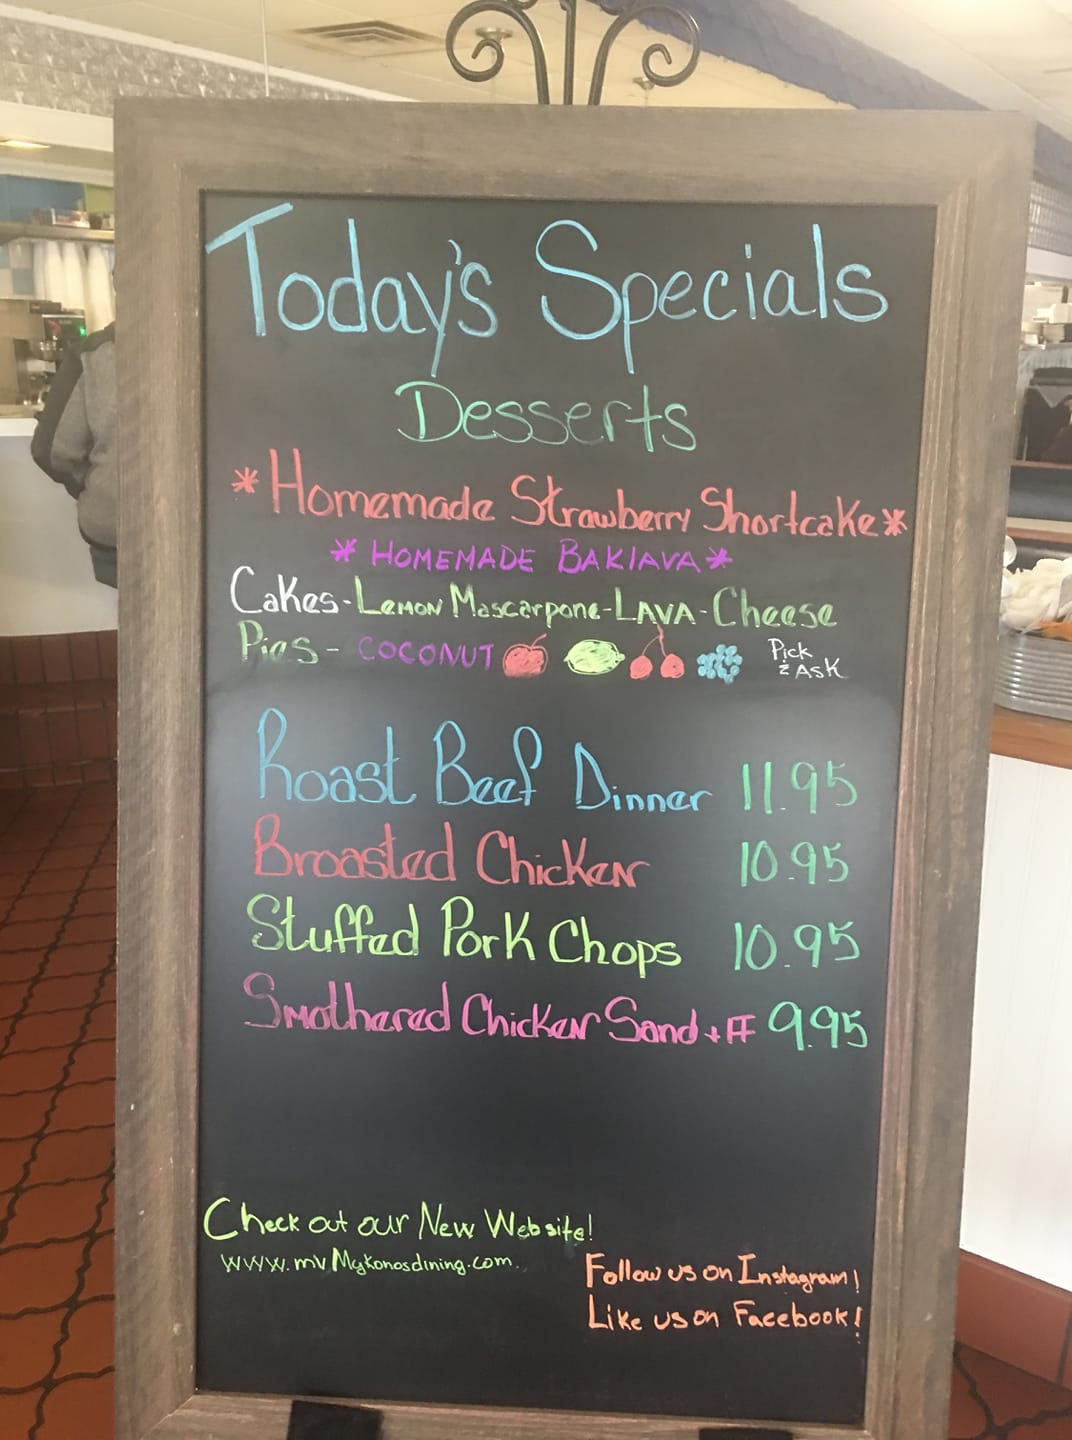 Today's Specials
Desserts
*Homemade Strawberry Shortcake*
* HOMEMADE BAKLAVA *
Cakes - Lemon Mascarpone - LAVA - Cheese
Pies - COCONUT Pick & Ask
Roast Beef Dinner 11.95
Broasted Chicken 10.95
Stuffed Pork Chops 10.95
Smothered Chicken Sand + FF 9.95
Check out our New Website!
www.mvMykonosdining.com.
Follow us on Instagram!
Like us on Facebook!